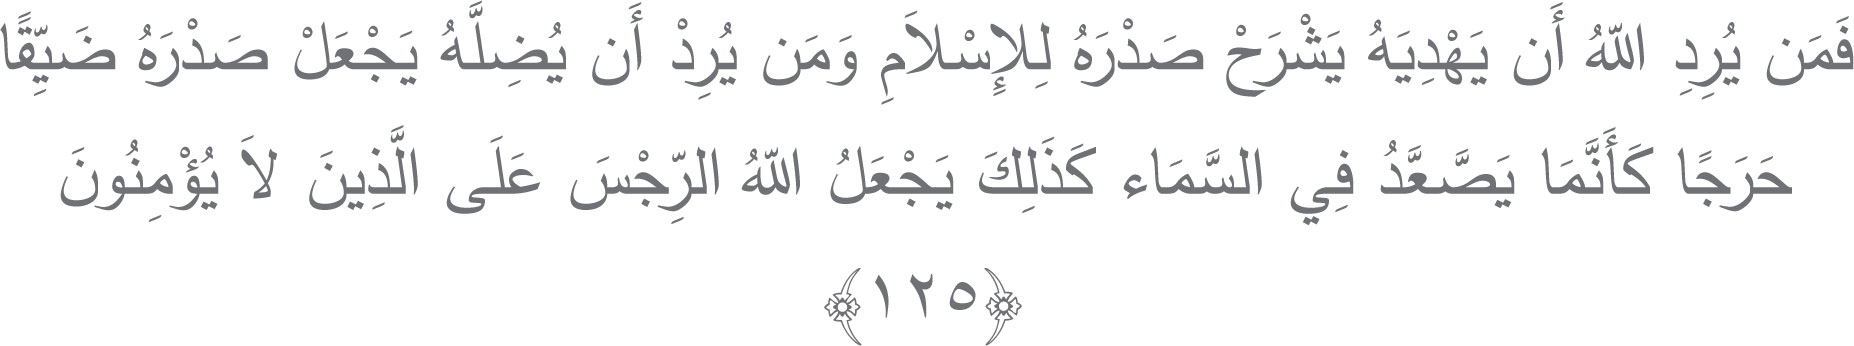 فَمَن يُرِدِ اللّهُ أَن يَهْدِيَهُ يَشْرَحْ صَدْرَهُ لِلإِسْلاَمِ وَمَن يُرِدْ أَن يُضِلَّهُ يَجْعَلْ صَدْرَهُ ضَيِّقًا
حَرَجًا كَأَنَّمَا يَصَّعَّدُ فِي السَّمَاء كَذَلِكَ يَجْعَلُ اللّهُ الرِّجْسَ عَلَى الَّذِينَ لاَ يُؤْمِنُونَ
﴿١٢٥﴾